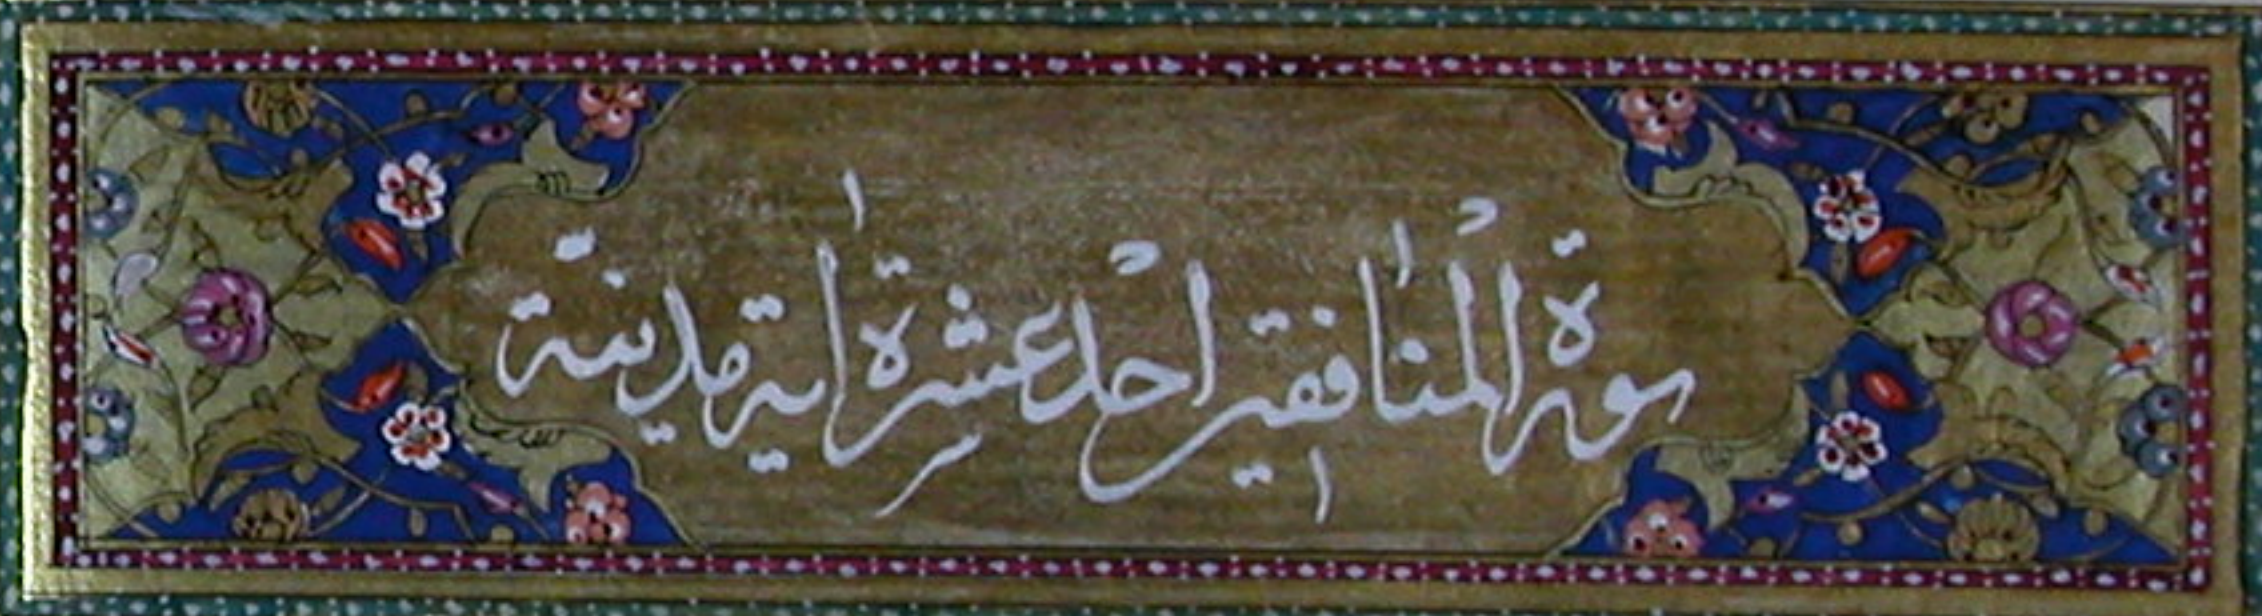 سورة المنافقين احد عشرة اية مدينة